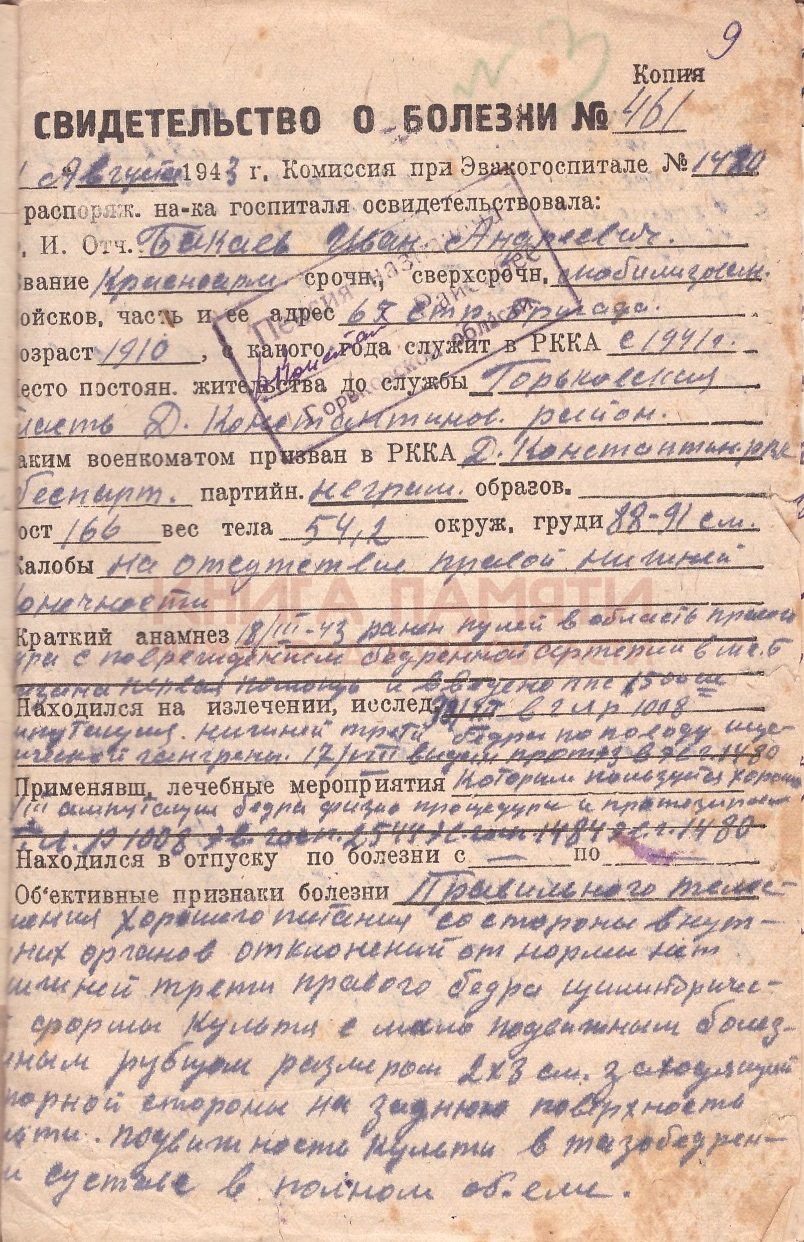 9
Копия
СВИДЕТЕЛЬСТВО О БОЛЕЗНИ № 461
Августа 1943 г. Комиссия при Эвакогоспитале № 1480
распоряж. на-ка госпиталя освидетельствовала:
И. Отч. Бакаев Иван Андреевич.
вание Красноарм. срочн., сверхсрочн. мобилизован.
ойсков, часть и ее адрес 67 стр. бригада.
озраст 1910, с какого года служит в РККА с 1941 г.
есто постоян. жительства до службы Горьковская
ласть Д. Константинов. район.
аким военкоматом призван в РККА Д. Константин. рвк
беспарт. партийн. неграм. образов.
ост 166 вес тела 54,2 окруж. груди 88-91 см.
алобы на отсутствие правой нижней
онечности
КНИГА ПАМЯТИ
Краткий анамнез 18/III-43 ранен пулей в область правого
с повреждением бедренной артерии в
первая помощь и введено ппс 1500
Находился на излечении, исслед. в 1008
нижней трети бедра по поводу
ической гангрены. 17/VIII выдан протез в эв. г. 1480
Применявш. лечебные мероприятия которым пользуется хорошо
III ампутация бедра физио процедуры и
1008 эв. госп. 2544 1484 1480
Находился в отпуску по болезни с — по
Об'ективные признаки болезни Правильного телос-
жения хорошего питания со стороны внут-
них органов отклонений от нормы нет
ижней трети правого бедра цилиндричес-
формы культя с мало подвижным болез-
ным рубцом размером 2х3 см. заходящий
порной стороны на заднюю поверхность
льти. Подвижность культи в тазобедрен-
суставе в полном об.еме.
Пенсия назначена
Констан Райсобес
Горьковской области